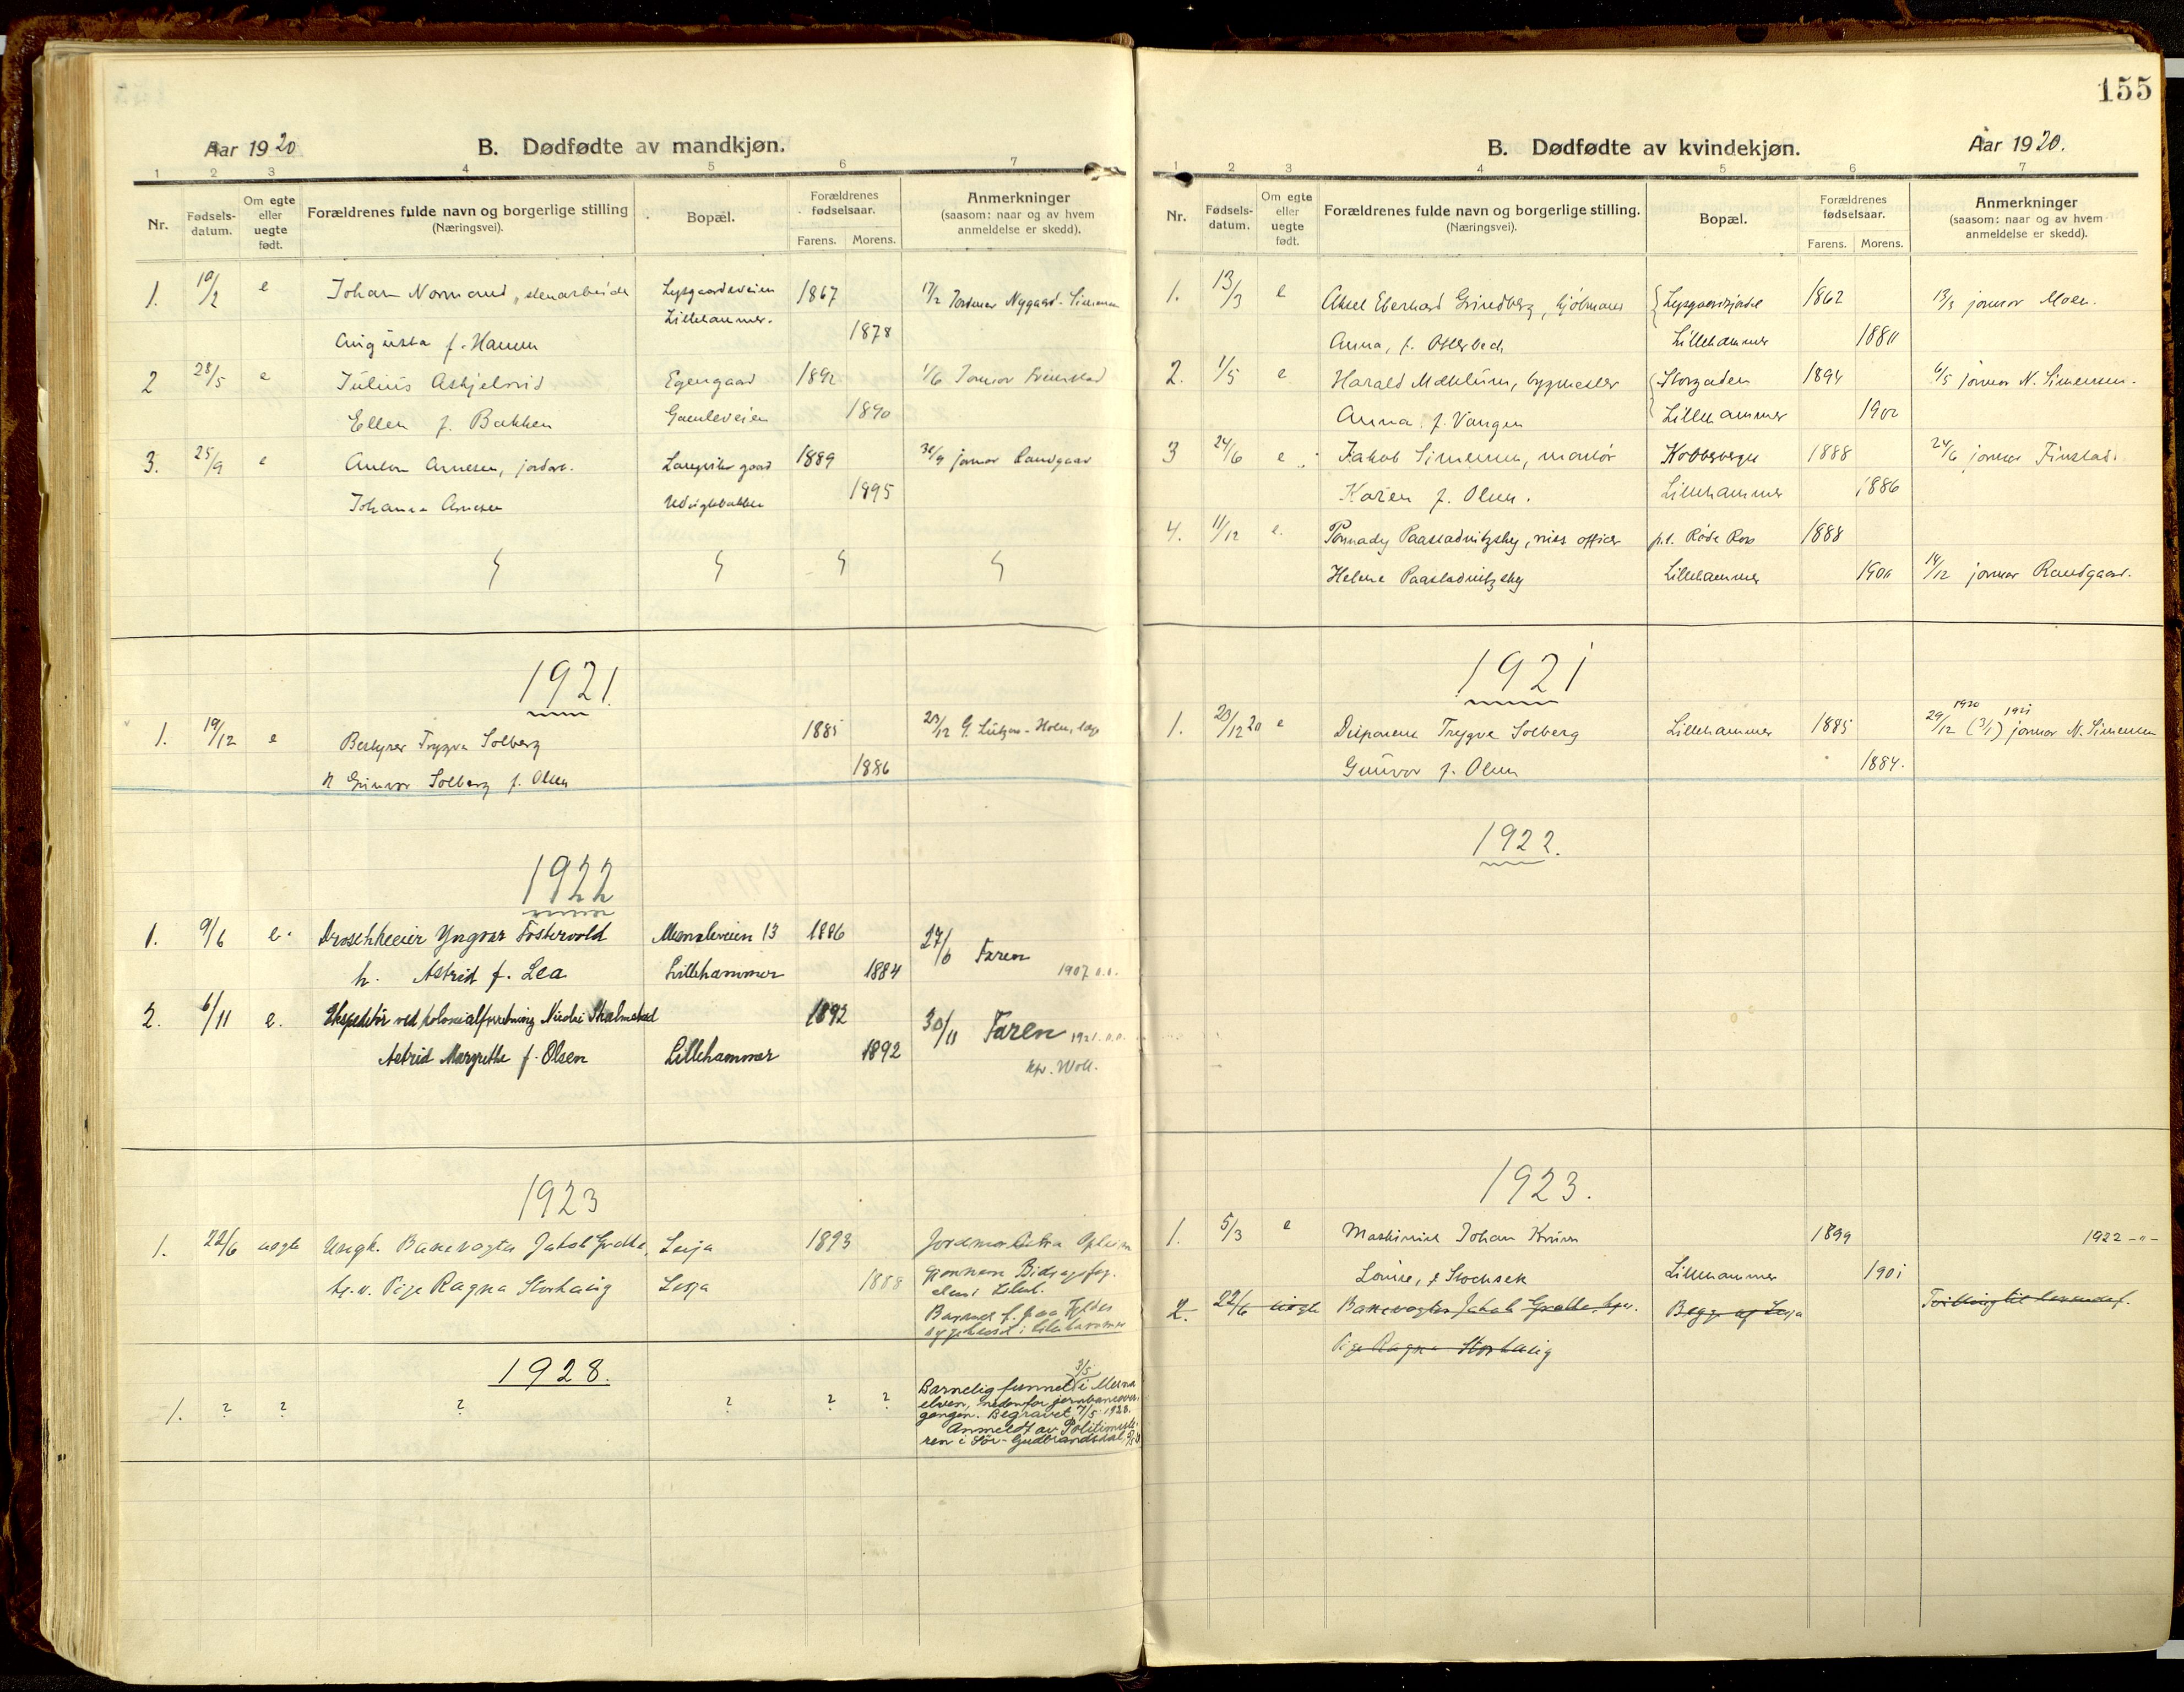 Aar 1920
B. Dødfødte av mandkjøn.
1 2 3 4 5 6 7
Nr.
Fødsels-
datum.
Om egte
eller
uegte
født.
Forældrenes fulde navn og borgerlige stilling
(Næringsvei).
Bopæl.
Forældrenes
fødselsaar.
Farens. Morens.
Anmerkninger
(saasom: naar og av hvem
anmeldelse er skedd).
1. 10/2 e Johan Normand, stenarbeider Lysgaardsveien 1867 17/2 Jordmor Nygaard-Simensen
Lillehammer.
Augusta f. Hansen 1878
2 28/5 e Julius Askjelsrid Egengaard 1892 1/6
Ellen f. Bakken Gamleveien 1890
3. 25/9 e Anton Arnesen, jordarb. gaard 1889 jormor Randgaar
Johanna Arnesen 1895
1921.
1. 19/12 e Bestyrer Trygve Solberg 1885 23/12 G. Lützow-Holm, læge
h Gunvor Solberg f. Olsen 1886
1922
1. 9/6 e. Droschkeeier Yngvar Fostervold Mesnaleveien 13 1886 27/6 Faren
h. Astrid f. Lea Lillehammer 1884 1907 o.o.
2. 6/11 e. Ekspeditör ved kolonialforretning Nicolai Skalmstad 1892 30/11 Faren 1921. o.o.
Astrid Margrethe f. Olsen Lillehammer 1892
kpr. Woll.
1923
1. 22/6 uegte Ungk. Banevogter Jakob Grotte, Lesja 1893 Jordmor Opheim
Pige Ragna Storhaug Lesja 1888 gjennem Bidragsfog.
den i Lileh.
Barnet f. paa Fylkes
sygehuset i Lillehammer
1928.
1. ? ? ? ? ? ? Barnelig funnet 3/5 i Mesna
elven, nedenfor jernbaneover-
gangen. Begravet 7/5 1928.
Anmeldt av Politimeste-
ren i Sør-Gudbrandsdal,
155
B. Dødfødte av kvindekjøn.
Aar 1920.
1 2 3 4 5 6 7
Nr.
Fødsels-
datum.
Om egte
eller
uegte
født.
Forældrenes fulde navn og borgerlige stilling.
(Næringsvei).
Bopæl.
Forældrenes
fødselsaar.
Farens. Morens.
Anmerkninger
(saasom: naar og av hvem
anmeldelse er skedd).
1. 13/3 e Aksel Eberhard Grindberg, kjøbmand Lysgaardsjordet 1862 13/3 jormor Moen.
Anna, f. Otterbech Lillehammer 1880
2. 1/5 e Harald Mæhlum, bygmester Storgaden 1894 6/5 jormor N. Simensen.
Anna f. Vangen Lillehammer 1902
3 24/6 e Jakob Simensen, montør Kobberverget 1888 24/6 jormor Finstad.
Karen f. Olsen. Lillehammer 1886
4. 11/12 e. Paastadnitzsky, officer p.t. Røde Kors 1888
Helene Paastadnitzsky Lillehammer 1900 14/12 jormor Randgaard.
1921
1. 20/12 20 e Disponent Trygve Solberg Lillehammer 1885 1920 29/12 (3/1) 1921 jormor N. Simensen
Gunvor f. Olsen 1884.
1922.
1923.
1. 5/3 e Maskinist Johan Kruse 1899 1922 -"-
Louise, f. Stochsek Lillehammer 1901
2. 22/6 uegte Banevogter Jakob Grotte, Begge af Lesja Tvilling til levendef.
Pige Ragna Storhaug